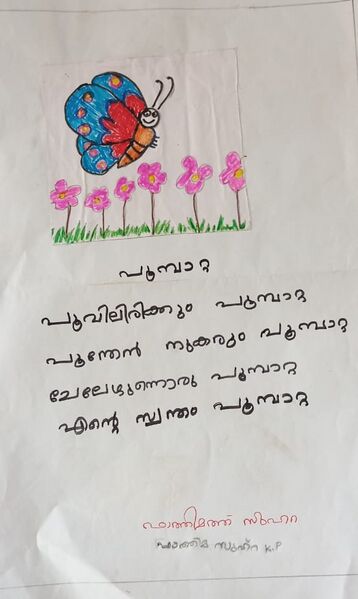 പൂമ്പാറ്റ
പൂവിലിരിക്കും പൂമ്പാറ്റ
പൂന്തേൻ നുകരും പൂമ്പാറ്റ
ചേലേഴുന്നൊരു പൂമ്പാറ്റ
എന്റെ സ്വന്തം പൂമ്പാറ്റ
ഫാത്തിമത്ത് സുഹറ
ഫാത്തിമ സുഹ്റ K.P